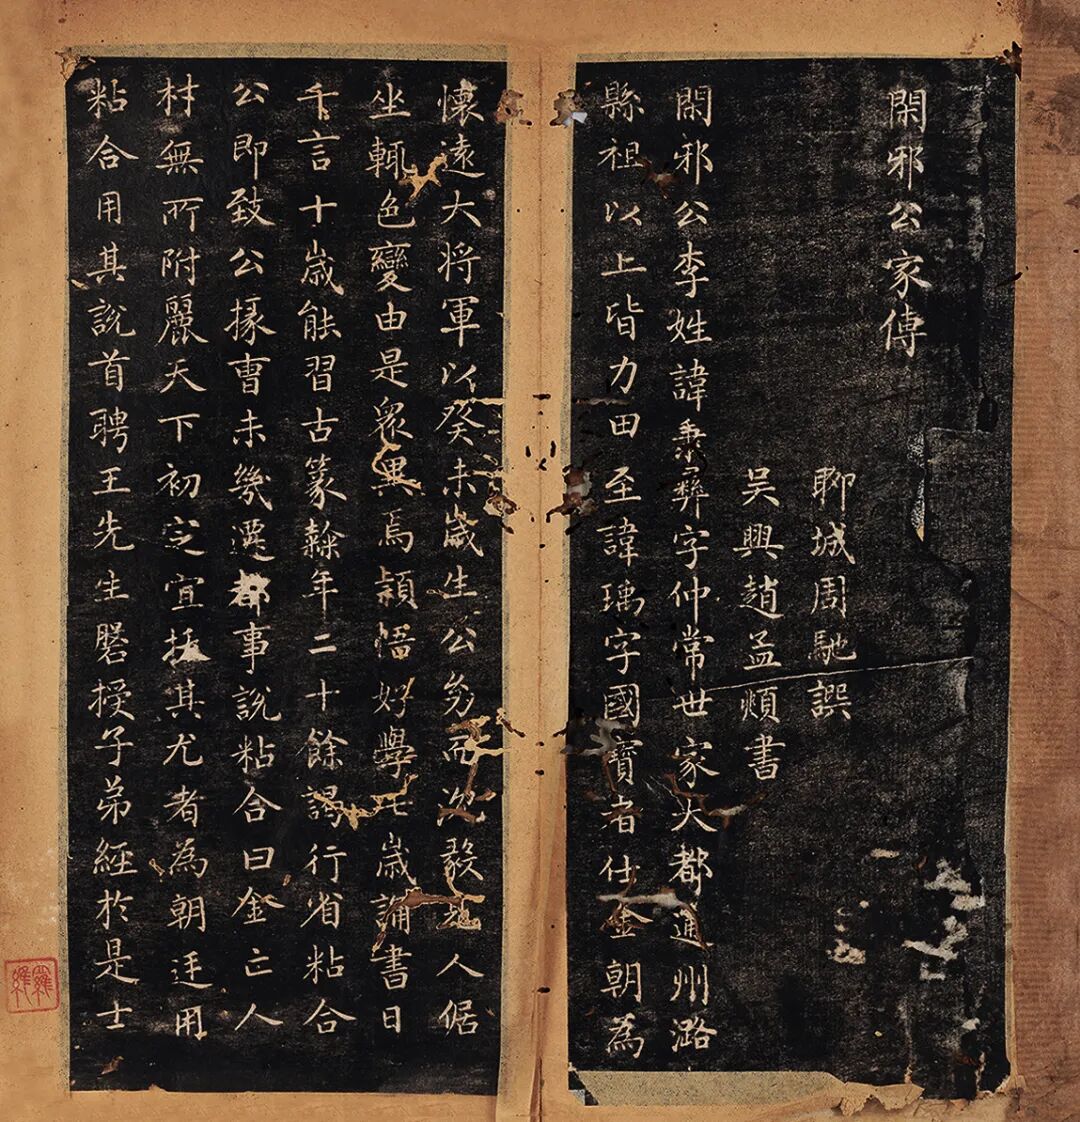 閑邪公家傳
聊城周馳譔
吳興趙孟頫書
閑邪公李姓諱秉彝字仲常世家大都通州潞
縣祖以上皆力田至諱瑀字國寶者仕金朝為
懷遠大將軍以癸未歲生公幼而沈毅人倨
坐輒色變由是眾異焉穎悟好學七歲誦書日
千言十歲能習古篆隸年二十餘謁行省粘合
公即致公掾曹未幾遷都事說粘合曰金亡人
材無所附麗天下初定宜拔其尤者為朝廷用
粘合用其說首聘王先生磐授子弟經於是士
羅維